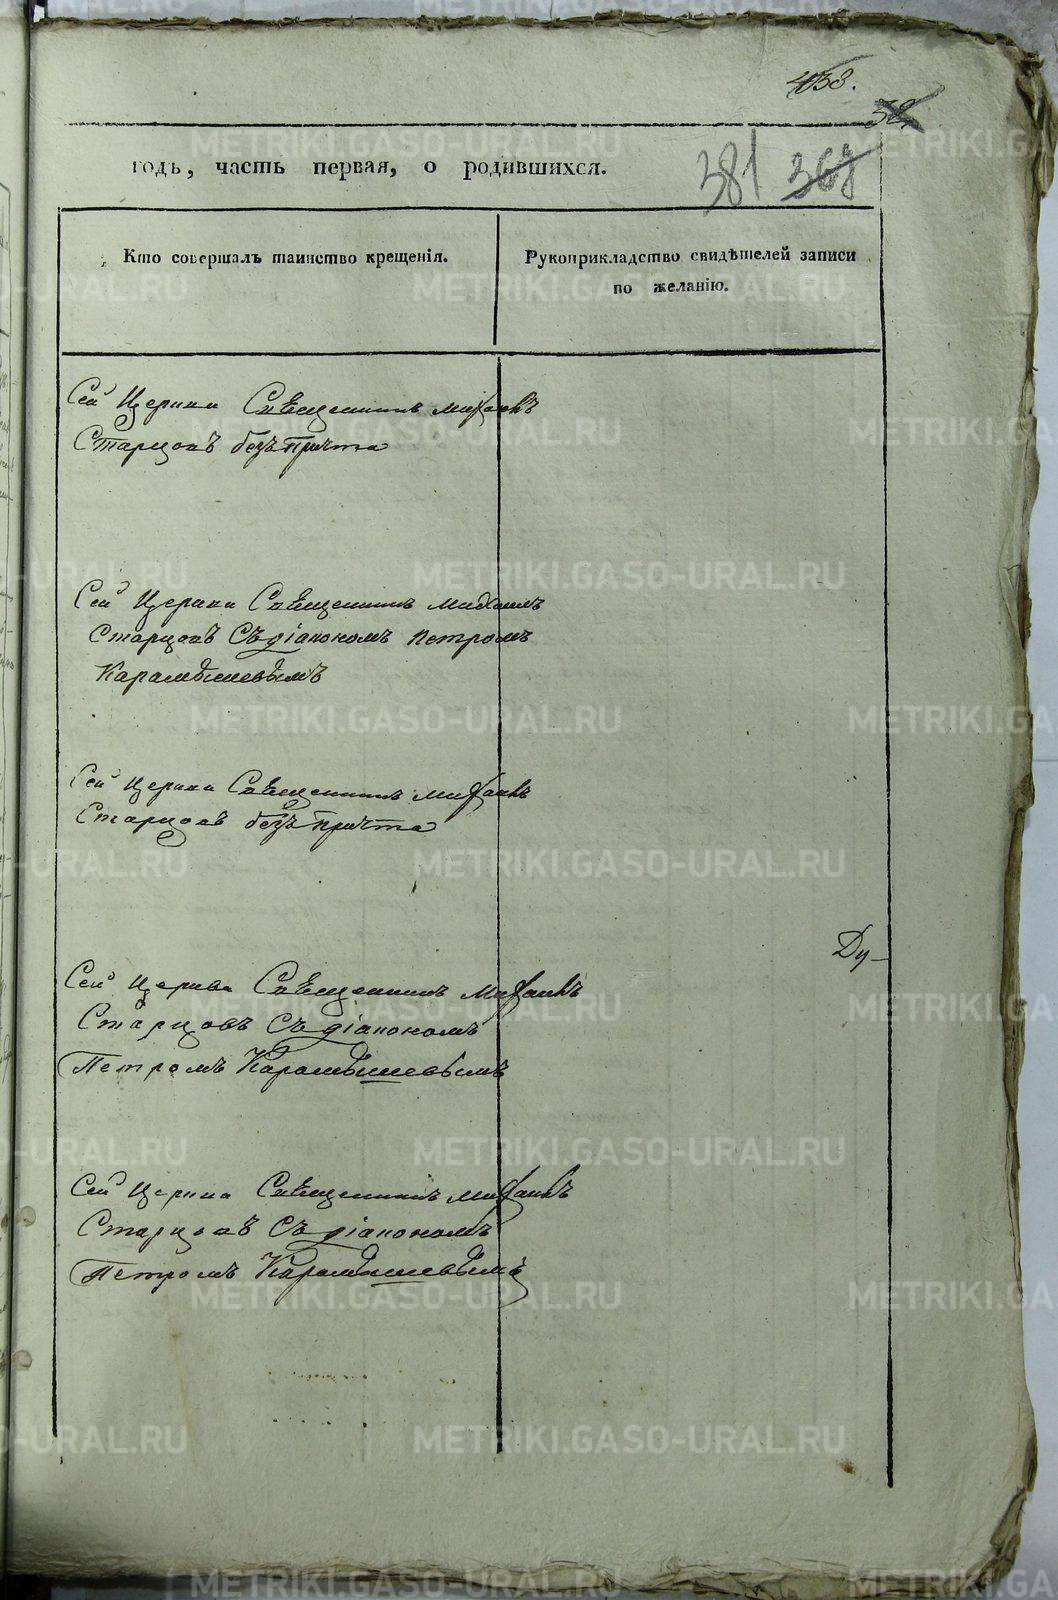 438.
годъ, часть первая, о родившихся.
381 368
Кто совершалъ таинство крещенія.
Рукоприкладство свидѣтелей записи
по желанію.
Сей Церкви Священникъ Михаилъ
Старцовъ безъ причта
Сей Церкви Священникъ Михаилъ
Старцовъ Съ діакономъ Петромъ
Карамышевымъ
Сей Церкви Священникъ Михаилъ
Старцовъ безъ причта
Ду-
Сей Церкви Священникъ Михаилъ
Старцовъ Съ діакономъ
Петромъ Карамышевымъ
Сей Церкви Священникъ Михаилъ
Старцовъ Съ діакономъ
Петромъ Карамышевымъ
METRIKI.GASO-URAL.RU